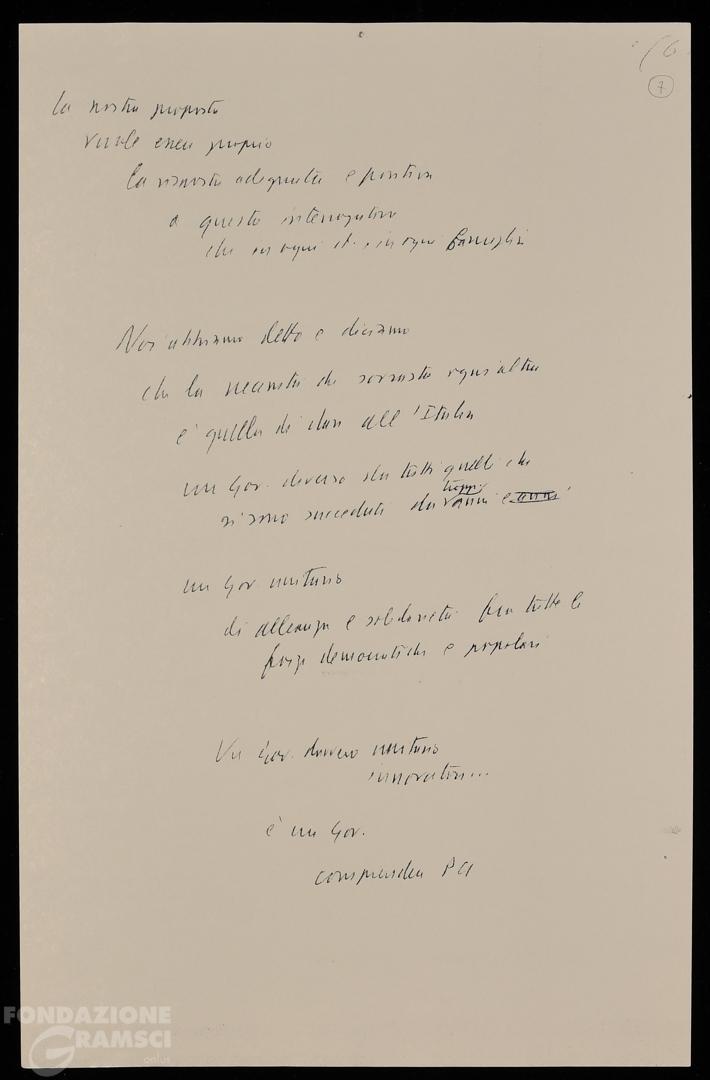 16
7
La nostra proposta
vuole essere proprio
la risposta adeguata e positiva
a questo interrogativo
che in ogni st. e in ogni famiglia
Noi abbiamo detto e diciamo
che la necessità che sovrasta ogni altra
è quella di dare all'Italia
un Gov. diverso da tutti quelli che
si sono succeduti da troppi anni e anni
un Gov. unitario
di alleanza e solidarietà fra tutte le
forze democratiche e popolari
Un Gov. davvero unitario
innovatore...
è un Gov.
comprendea PCI
FONDAZIONE
GRAMSCI
onlus